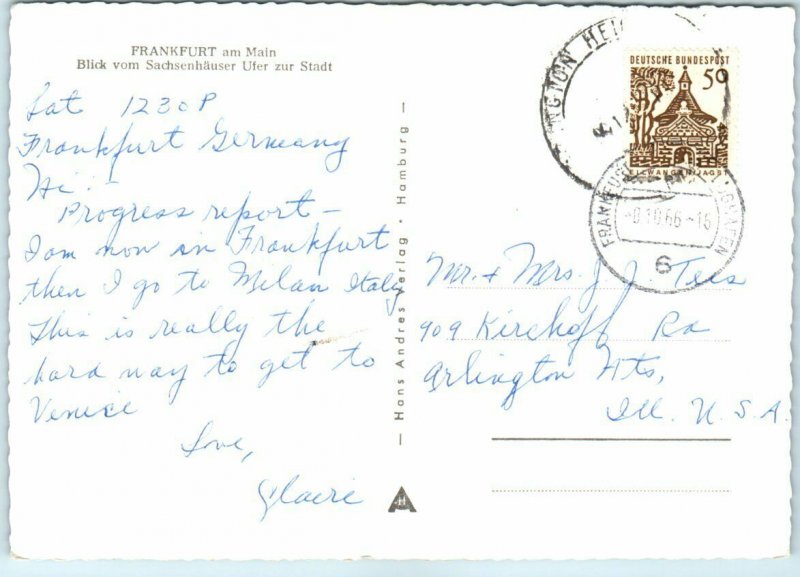 FRANKFURT am Main
Blick vom Sachsenhäuser Ufer zur Stadt
Sat 1230 P
Frankfurt Germany
Hi! -
Progress report -
I am now in Frankfurt
then I go to Milan Italy
This is really the
hard way to get to
Venice
Love,
Claire
Hans Andres Verlag · Hamburg
DEUTSCHE BUNDESPOST
50
ELLWANGEN/JAGST
10.66-15
6
Mr. + Mrs. J. J. Tees
909 Kirchoff Rd
Arlington Hts,
Ill. U.S.A.